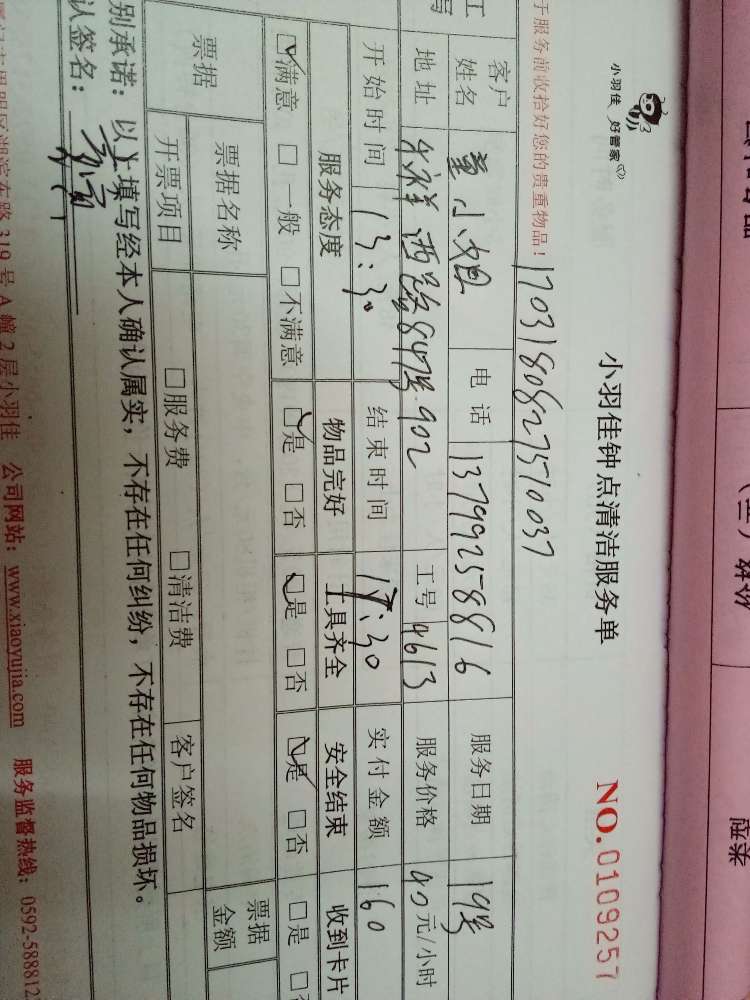 小羽佳 好管家
小羽佳钟点清洁服务单 NO.0109257
于服务前收拾好您的贵重物品! 1703180827510037
客户姓名 童小姐 电话 13799258816 服务日期 19号
地址 长祥西路847号902 工号 4613 服务价格 40元/小时
开始时间 13:30 结束时间 17:30 实付金额 160
服务态度 物品完好 工具齐全 安全结束 收到卡片
☑满意 □一般 □不满意 ☑是 □否 ☑是 □否 ☑是 □否 □是 □否
票据 票据名称 票据金额
开票项目 □服务费 □清洁费 客户签名
别承诺:以上填写经本人确认属实,不存在任何纠纷,不存在任何物品损坏。
认签名:
明区湖滨东路319号A幢2层小羽佳 公司网站:www.xiaoyujia.com 服务监督热线:0592-588812